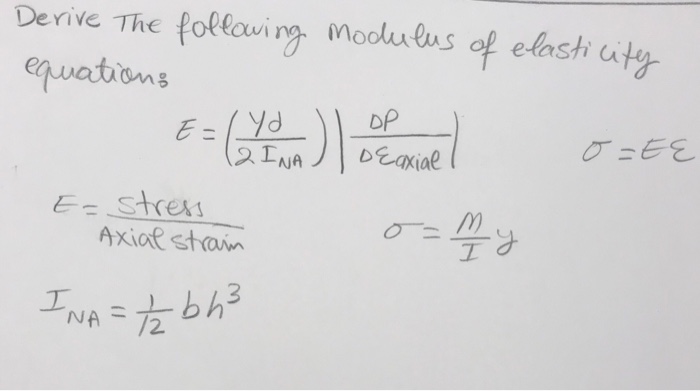 Derive The following modulus of elasticity
equations
E = (yd / 2 I_NA) | DP / Dε axial |
σ = Eε
E = stress / Axial strain
σ = M/I y
I_NA = 1/12 bh³